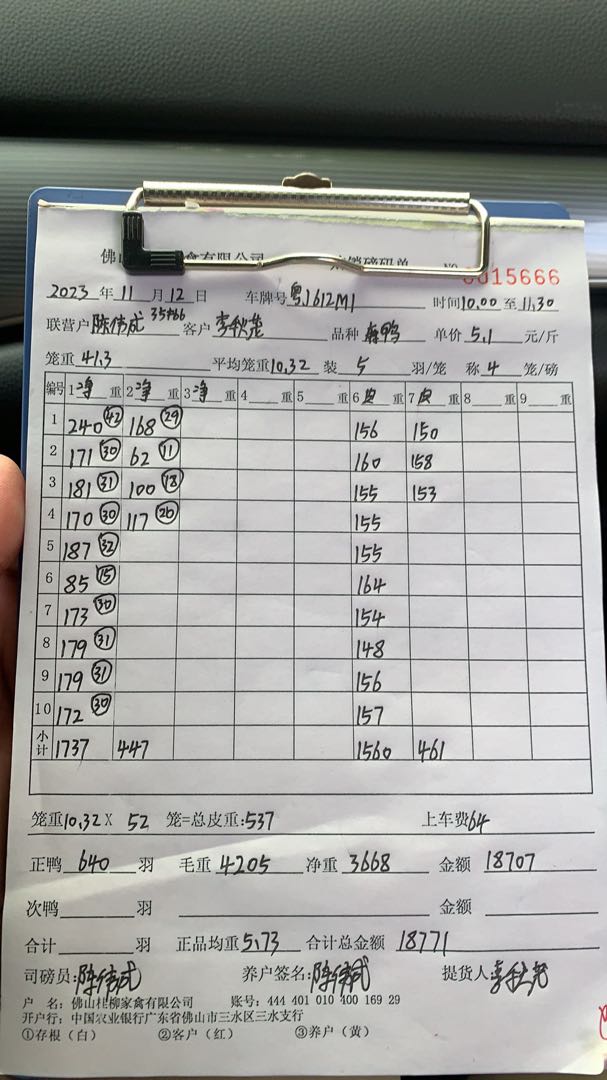 佛山 家禽有限公司 销磅码单 NO 0015666
2023 年 11 月 12 日 车牌号 粤J612M1 时间10.00 至 11.30
联营户 陈伟成 35766 客户 李秋 品种 鸭 单价 5.1 元/斤
笼重 41.3 平均笼重10.32 装 5 羽/笼 称 4 笼/磅
编号 1 净 重 2 净 重 3 净 重 4 重 5 重 6 皮 重 7 皮 重 8 重 9 重
1 240 42 168 29 156 150
2 171 30 62 11 160 158
3 181 31 100 18 155 153
4 170 30 117 20 155
5 187 32 155
6 85 15 164
7 173 30 154
8 179 31 148
9 179 31 156
10 172 30 157
小计 1737 447 1560 461
笼重10.32 X 52 笼=总皮重:537 上车费64
正鸭 640 羽 毛重 4205 净重 3668 金额 18707
次鸭 羽 金额
合计 羽 正品均重5.73 合计总金额 18771
司磅员:陈伟成 养户签名:陈伟成 提货人 李秋
户 名：佛山桂柳家禽有限公司 账号：444 401 010 400 169 29
开户行：中国农业银行广东省佛山市三水区三水支行
①存根（白） ②客户（红） ③养户（黄）